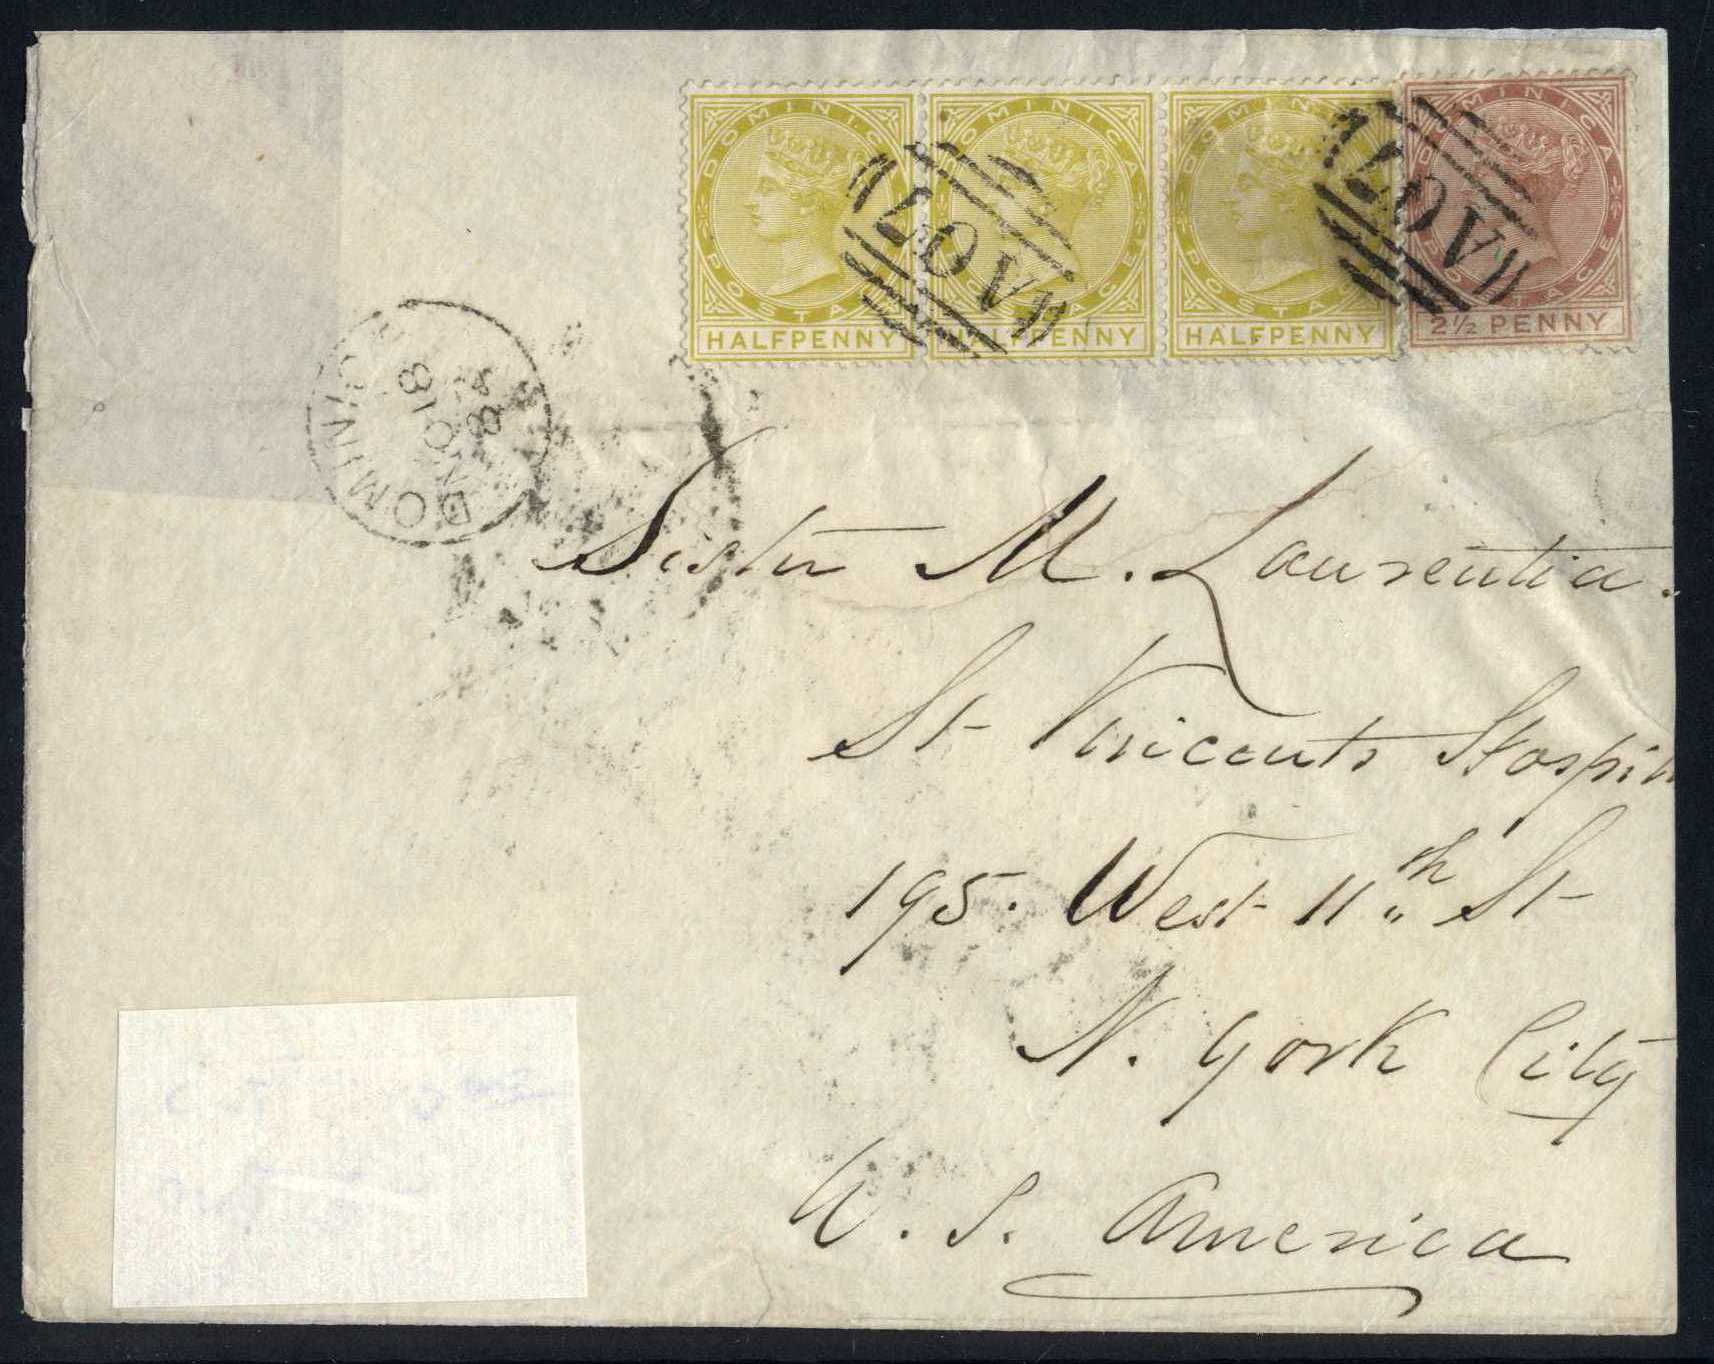 DOMINICA DOMINICA DOMINICA DOMINICA
POSTAGE POSTAGE POSTAGE POSTAGE
HALFPENNY HALFPENNY HALFPENNY 2½ PENNY
A07 A07
DOMINICA
18
84
Sister M. Laurentia.
St Vincents Hospit
195. West 11th St
N. York City
U. S. America